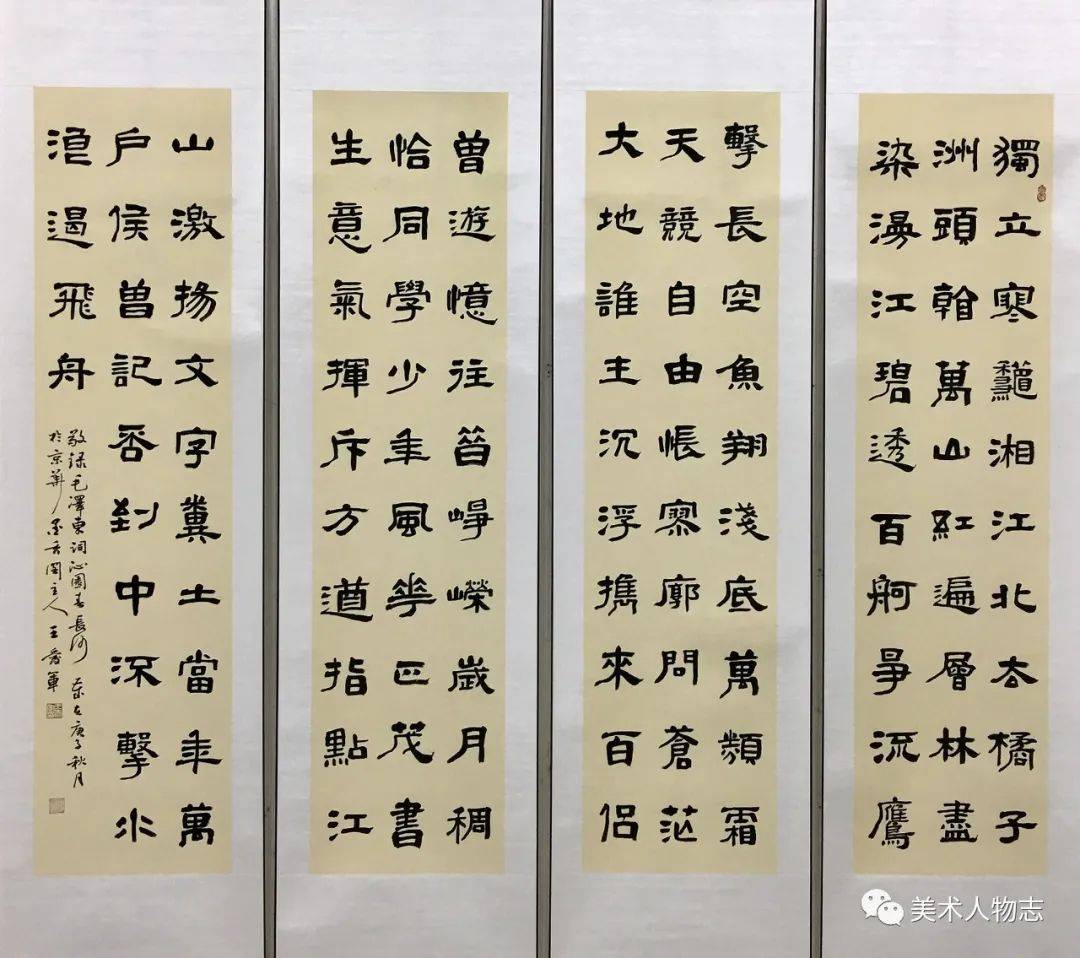 獨立寒龝湘江北去橘子
洲頭看萬山紅遍層林盡
染漫江碧透百舸爭流鷹
擊長空魚翔淺底萬類霜
天競自由悵寥廓問蒼茫
大地誰主沉浮攜來百侶
曾遊憶往昔崢嶸歲月稠
恰同學少年風華正茂書
生意氣揮斥方遒指點江
山激揚文字糞土當年萬
戶侯曾記否到中流擊水
浪遏飛舟
敬録毛澤東詞沁園春長沙 歲在庚子秋月
於京華 閣主人 王軍
美术人物志